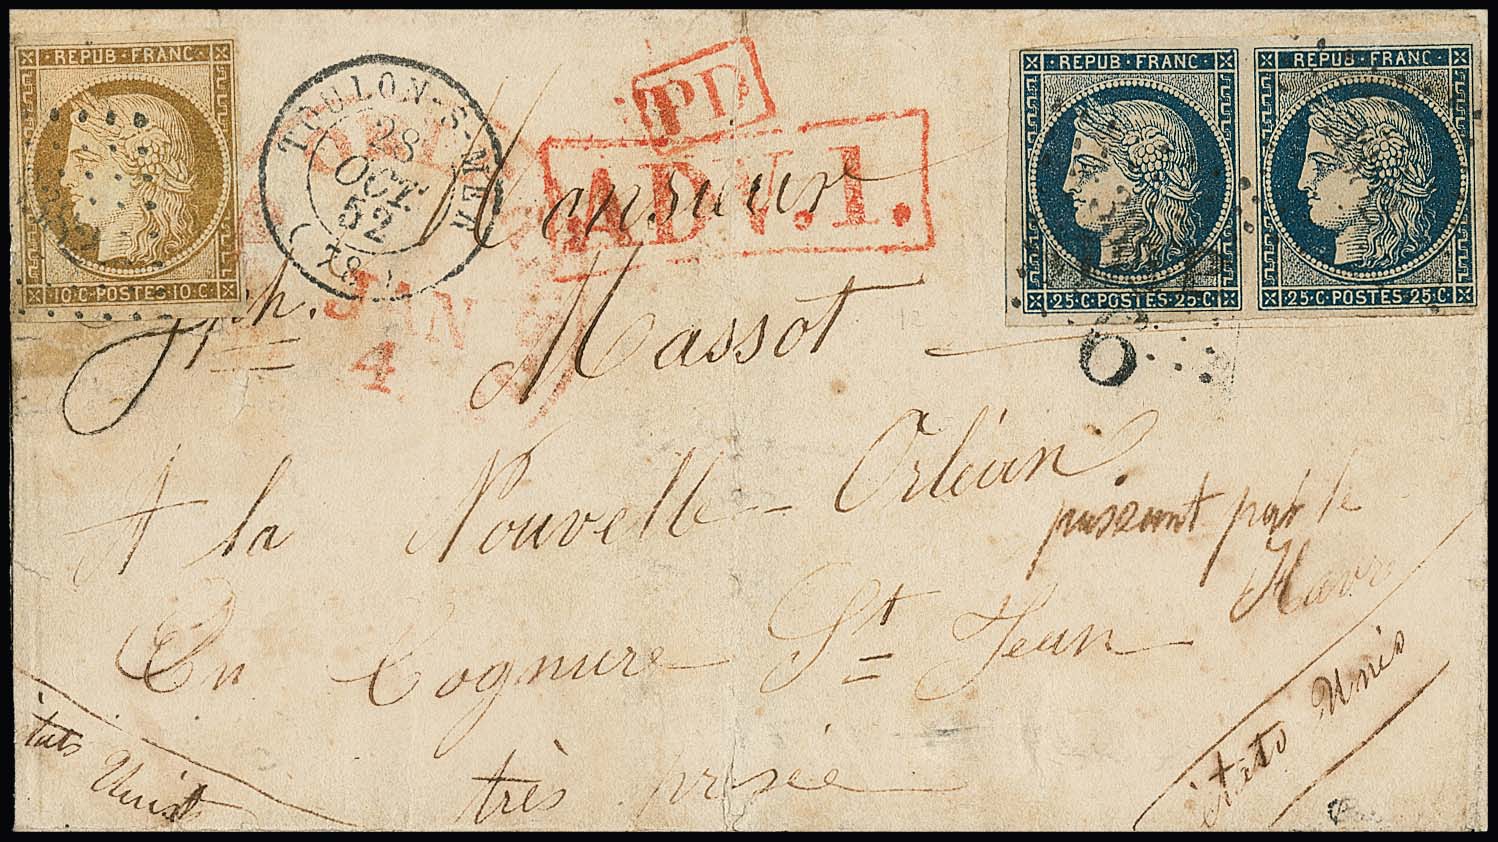 REPUB·FRANC·
10·C·POSTES·10·C·
TOULON-S-MER
28
OCT.
52
(78)
PD
ADV.1.
REPUB·FRANC·
25·C·POSTES·25·C·
REPUB·FRANC·
25·C·POSTES·25·C·
JAN
4
6
Monsieur
Jph. Massot
A la Nouvelle-Orléan.
passant par le
Havre
En Cognure St Jean
très prisée
états Unis
états Unis